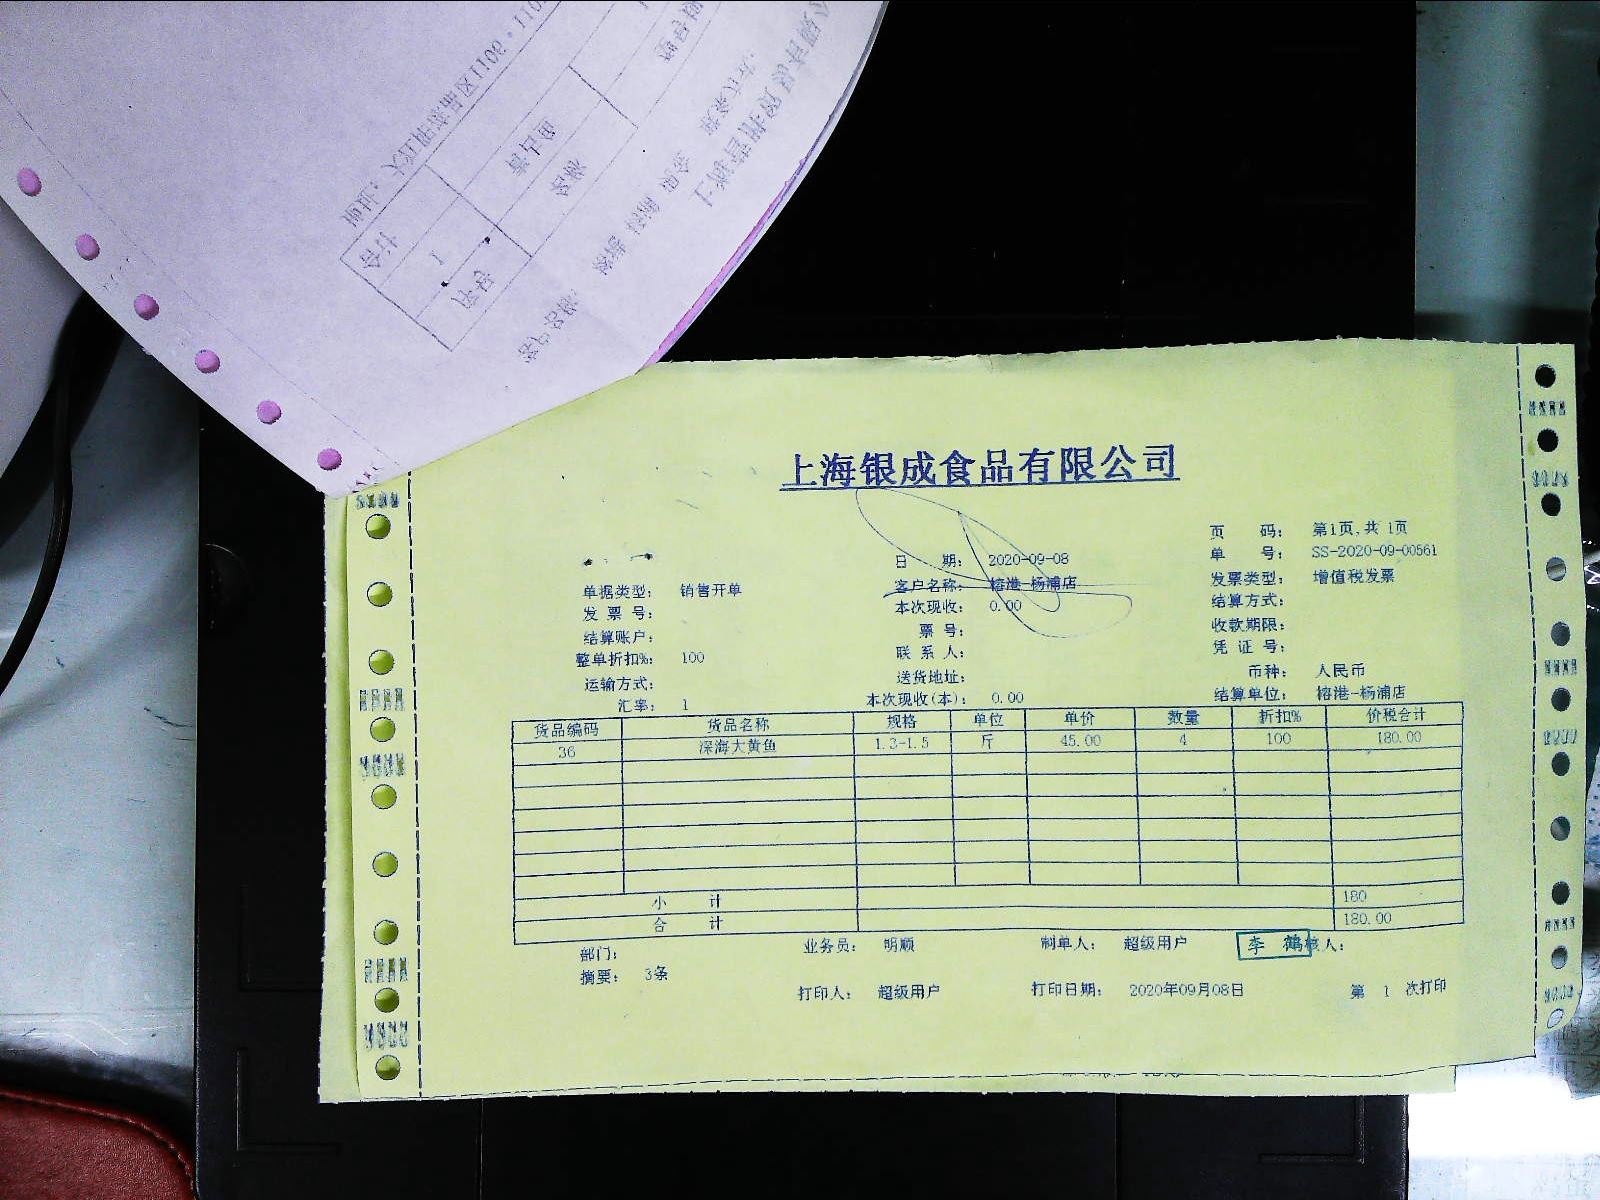 上海银成食品有限公司
页 码： 第1页,共 1页
日 期： 2020-09-08 单 号： SS-2020-09-00561
单据类型： 销售开单 客户名称： 榕港-杨浦店 发票类型： 增值税发票
发 票 号： 本次现收： 0.00 结算方式：
结算账户： 票 号： 收款期限：
整单折扣%： 100 联 系 人： 凭 证 号：
运输方式： 送货地址： 币种： 人民币
汇率： 1 本次现收(本)： 0.00 结算单位： 榕港-杨浦店
货品编码 货品名称 规格 单位 单价 数量 折扣% 价税合计
36 深海大黄鱼 1.3-1.5 斤 45.00 4 100 180.00
小 计 180
合 计 180.00
部门： 业务员： 明顺 制单人： 超级用户 李 鹤 核人：
摘要： 3条
打印人： 超级用户 打印日期： 2020年09月08日 第 1 次打印